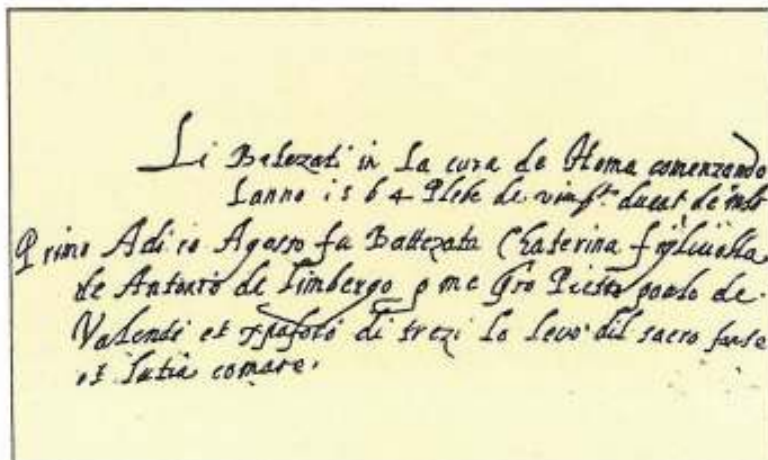 Li Batezati in La cura de Homa comenzando
Lanno 1564 Plebe de ducat de
Primo Adi 10 Agosto fu Battezata Chaterina figliuolla
de Antonio de Limbergo p me Pietro paulo de
Valendi et di trezi Lo levo dil sacro fonte
et Lutia comare.